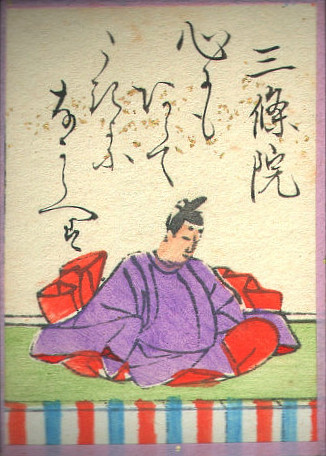 三條院
心にも
あらて
うきよに
なからへは